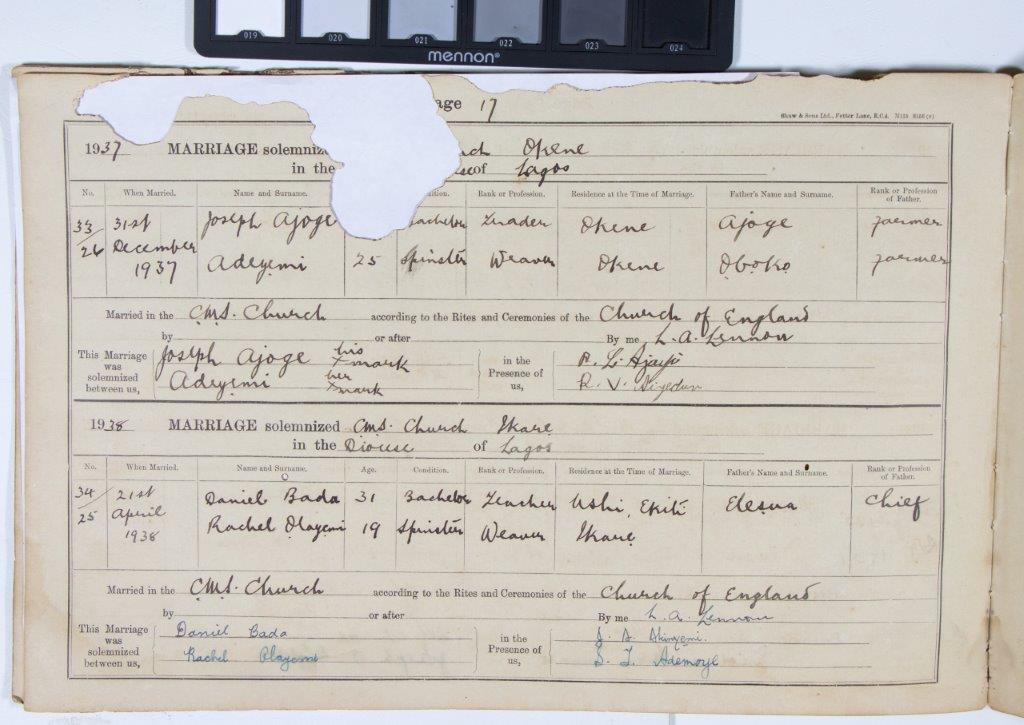 019 020 021 022 023 024
mennon®
age 17
Shaw & Sons Ltd., Fetter Lane, E.C.4.
1937 MARRIAGE solemniz ch Okene
in the se of Lagos
No. When Married. Name and Surname. dition. Rank or Profession. Residence at the Time of Marriage. Father's Name and Surname. Rank or Profession of Father.
33/26 31st December 1937 Joseph Ajoge Bachelor Trader Okene Ajoge Farmer
Adeyemi 25 Spinster Weaver Okene Oboko Farmer
Married in the C.M.S. Church according to the Rites and Ceremonies of the Church of England
by or after By me L. A. Lennon
This Marriage was solemnized between us, Joseph Ajoge his x mark in the Presence of us, R. L. Ajayi
Adeyemi her x mark R. V. Aiyedun
1938 MARRIAGE solemnized C.M.S. Church Ikare
in the Diocese of Lagos
No. When Married. Name and Surname. Age. Condition. Rank or Profession. Residence at the Time of Marriage. Father's Name and Surname. Rank or Profession of Father.
34/25 21st April 1938 Daniel Bada 31 Bachelor Teacher Ushi, Ekiti Elesua Chief
Rachel Olayemi 19 Spinster Weaver Ikare
Married in the C.M.S. Church according to the Rites and Ceremonies of the Church of England
by or after By me L. A. Lennon
This Marriage was solemnized between us, Daniel Bada in the Presence of us, J. A. Akinyemi.
Rachel Olayemi S. T. Ademoye